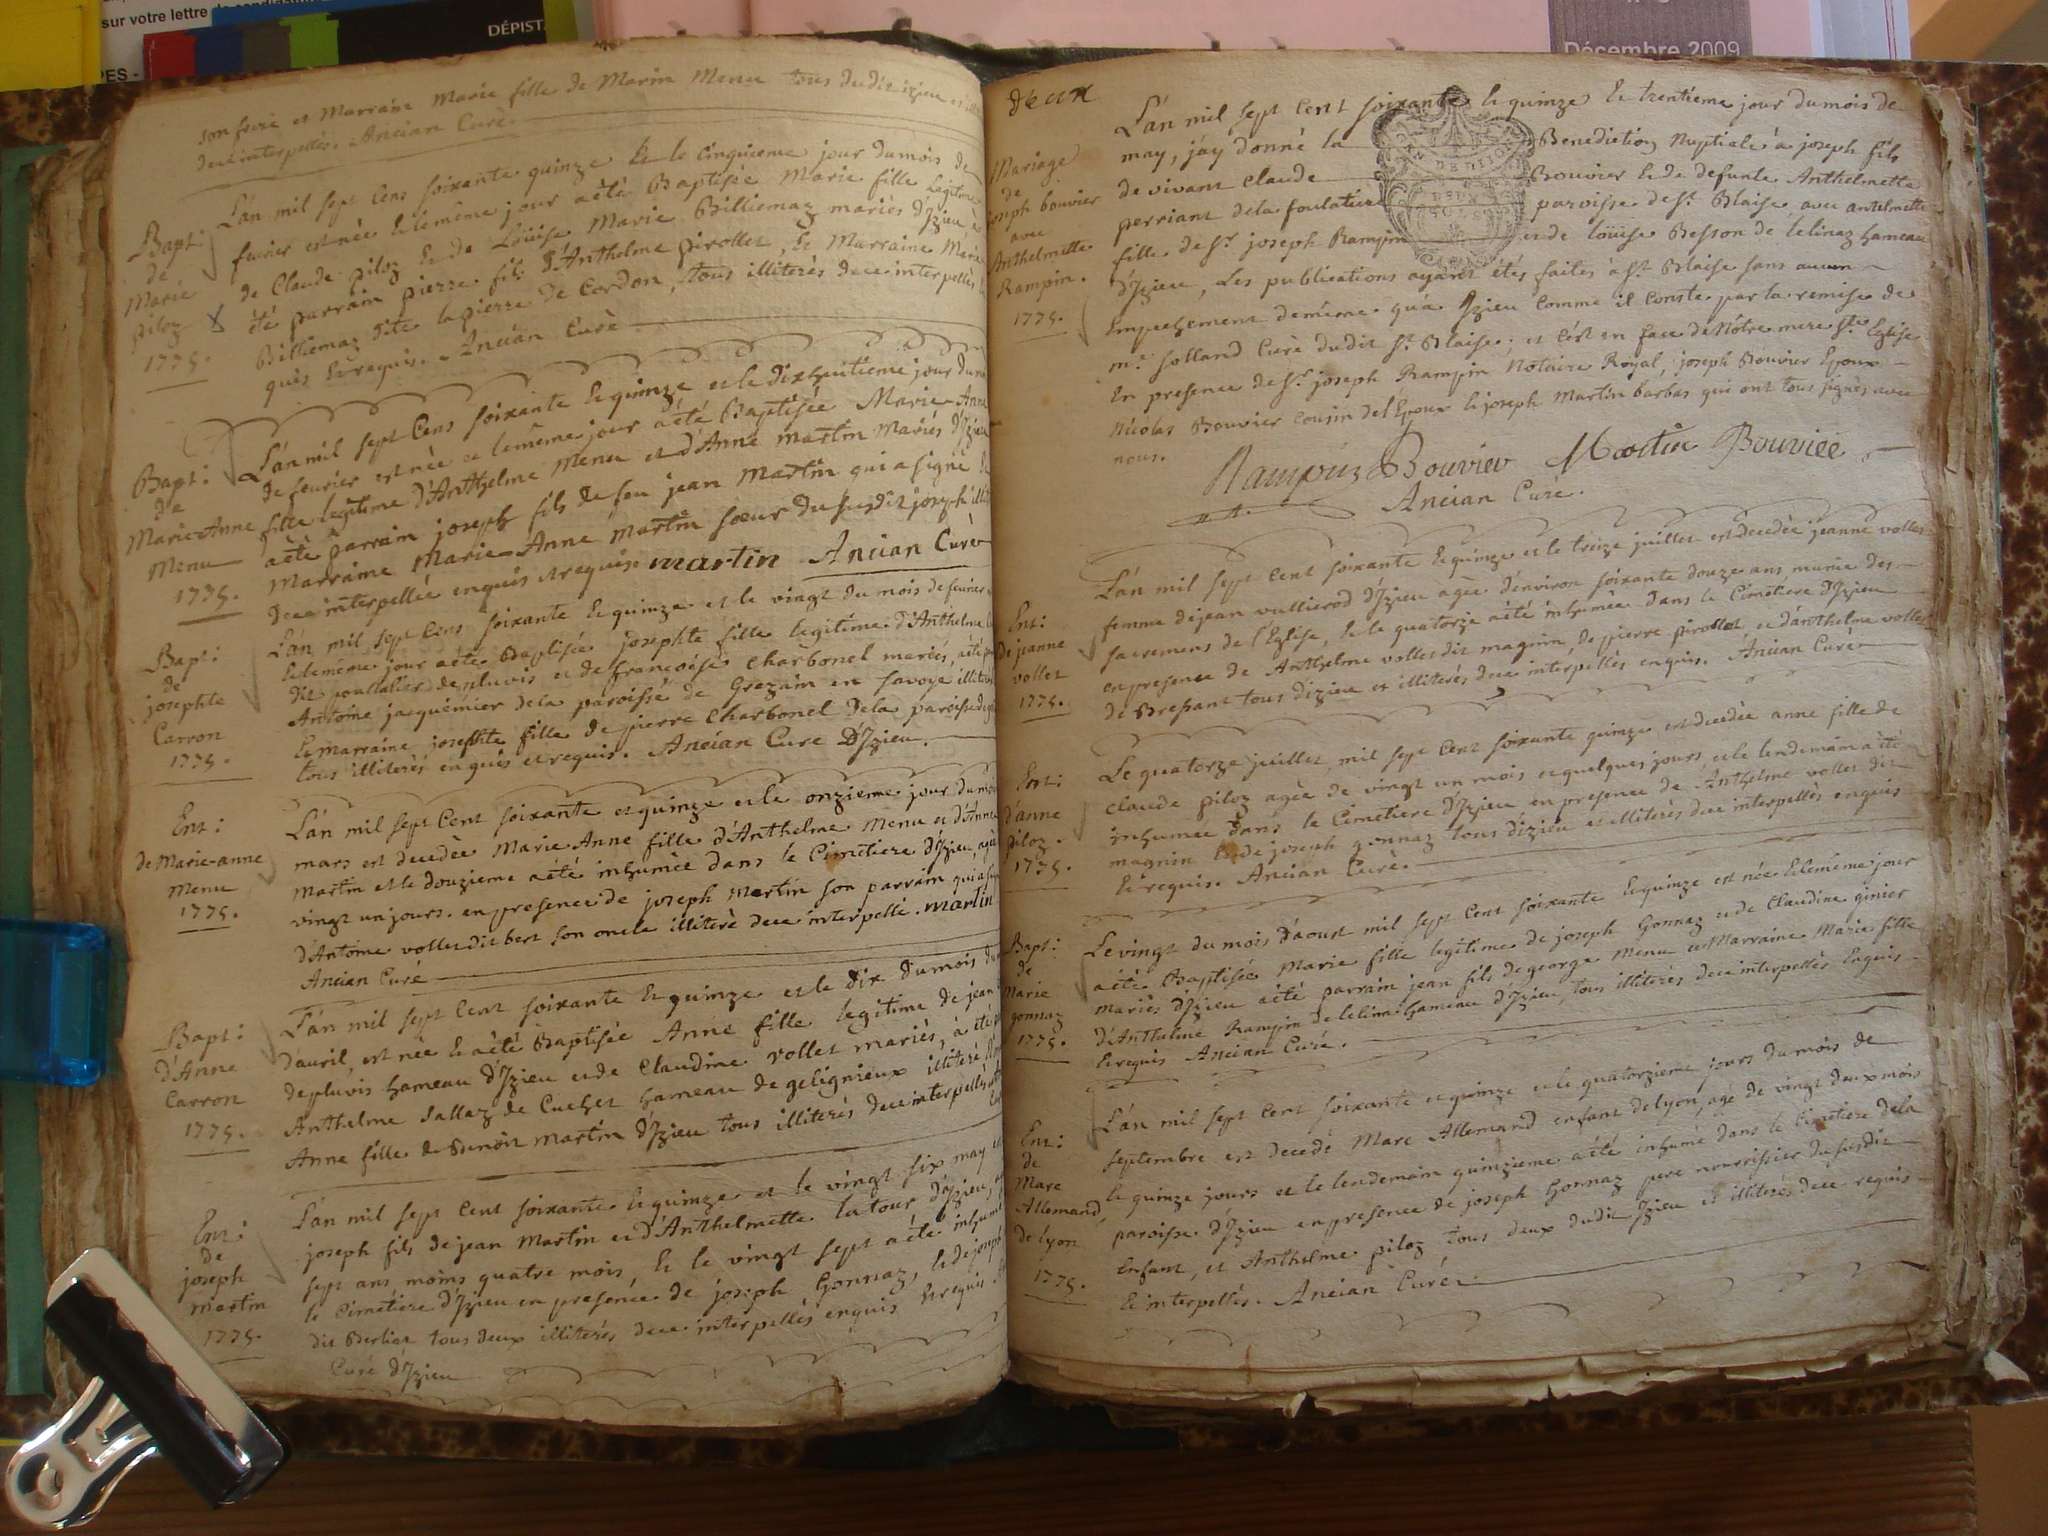 sur votre lettre de
DÉPIST
PES -
Décembre 2009
son frere et Marraine Marie fille de Marin Menu tous dudit izieu et
dece interpellés. Ancian Curé
Bapt:
de
Marie
piloz
1775.
L'an mil sept Cens soixante quinze & le Cinquieme jour du mois de
fevrier est née & le même jour a été Baptisée Marie fille Légitime
de Claude piloz & de Loüise Marie Billiemaz mariés d'Izieu, à
été parrain pierre fils d'Anthelme pirollet, & Marraine Marie
Billiemaz dite la pierre de Cordon, tous illiterés dece interpellés
quis & requis. Ancian Curé
Bapt:
de
Marie-Anne
Menu
1775.
L'an mil sept Cens soixante & quinze et le dixhuitieme jour du
de fevrier est née et le même jour a été Baptisée Marie-Anne
fille legitime d'Anthelme Menu et d'Anne Martin Mariés d'Izieu
a été parrain joseph fils de feu jean Martin qui a signé &
Marraine Marie-Anne Martin sœur du susdit joseph
dece interpellée enquis et requis. martin Ancian Curé
Bapt:
de
josephte
Carron
1775.
L'an mil sept Cens soixante & quinze et le vingt du mois de fevrier
& le même jour a été Baptisée josephte fille legitime d'Anthelme
dit de pluvis et de françoise Charbonel mariés, a été
Antoine jacquemier de la paroisse de Grezain en Savoye
& marraine josephte fille de pierre Charbonel de la paroisse
tous illiterés enquis et requis. Ancian Cure D'Izieu.
Ent:
de Marie-anne
Menu
1775.
L'an mil sept Cent soixante et quinze et le onzieme jour du mois
mars est decedée Marie Anne fille d'Anthelme Menu et d'Anne
Martin et le douzieme a été inhumée dans le Cimetiere d'Izieu, agée
vingt un jours. en presence de joseph Martin son parrain qui a
d'Antoine vollet dit bert son oncle illiteré dece interpellé. martin
Ancian Curé
Bapt:
d'Anne
Carron
1775.
L'an mil sept Cent soixante & quinze et le dix du mois
d'avril, est née & a été Baptisée Anne fille legitime de jean
de pluvis hameau d'Izieu et de Claudine vollet mariés, à été
Anthelme Sallaz de Cuchet hameau de gelignieux illiteré
Anne fille de Benoit Martin d'Izieu tous illiterés dece interpellés
Ent:
de
joseph
martin
1775.
L'an mil sept Cent soixante & quinze et le vingt six may
joseph fils de jean Martin et d'Anthelmette la tour d'Izieu,
sept ans moins quatre mois, & le vingt sept a été inhumé
le Cimetiere d'Izieu en presence de joseph Gonnaz, & de joseph
dit Berlion tous deux illiterés dece interpellés enquis & requis
Curé d'Izieu
deux
Mariage
de
joseph bouvier
avec
Anthelmette
Rampin.
1775.
L'an mil sept Cent soixante & quinze & trentieme jour du mois de
may, j'ay donné la Benediction Nuptiale à joseph fils
de vivant Claude Bouvier & de defunte Anthelmette
perriant de la foulatiere paroisse de St. Blaise avec antelmette
fille de Sr. joseph Rampin et de loüise Besson de lelinaz hameau
d'Izieu, Les publications ayant étés faites à St. Blaise sans aucun
Empechement de même qu'a Izieu Comme il Conste par la remise de
mr. Solland Curé dudit St. Blaise; et c'est en face de Nôtre mere Ste. Eglise
En presence de Sr. joseph Rampin Notaire Royal, joseph Bouvier Epoux
Nicolas Bouvier cousin de l'Epoux & joseph Martin barbas qui ont tous signés avec
nous.
Rampin Bouvier Martin Bouvier
Ancian Curé.
Ent:
de jeanne
vollet
1775.
L'an mil sept Cent soixante & quinze et le treize juillet est decedée jeanne vollet
femme de jean vullierod d'Izieu agée d'environ soixante douze ans munie des
sacremens de l'Eglise, & le quatorze a été inhumée dans le Cimetiere d'Izieu
en presence de Anthelme vollet dit magnin, de pierre pirollet et d'anthelme vollet
dit Bressant tous d'izieu et illiterés dece interpellés enquis. Ancian Curé
Ent:
d'anne
piloz.
1775.
Le quatorze juillet, mil sept Cent soixante quinze est decedée anne fille de
Claude piloz agée de vingt un mois et quelques jours, et le lendemain a été
inhumée dans le Cimetiere d'Izieu en presence de Anthelme vollet dit
magnin & de joseph gonnaz tous d'izieu et illiterés dece interpellés enquis
& requis. Ancian Curé.
Bapt:
de
Marie
gonnaz
1775.
Le vingt du mois d'aoust mil sept Cent soixante & quinze est née & le même jour
a été Baptisée Marie fille legitime de joseph Gonnaz et de Claudine ginier
mariés d'Izieu a été parrain jean fils de george Menu et Marraine Marie fille
d'Anthelme Rampin de lelina hameau d'Izieu, tous illiterés dece interpellés Enquis
& requis Ancian Curé.
Ent:
de
Marc
Allemand
de lyon
1775.
L'an mil sept Cent soixante et quinze et le quatorzieme jours du mois de
septembre est decedé Marc Allemand enfant de lyon, agé de vingt deux mois
& quinze jours et le lendemain quinzieme a été inhumé dans le Cimetiere de la
paroisse d'Izieu en presence de joseph Gonnaz pere nourrissier du susdit
Enfant, et Anthelme piloz tous deux dudit Izieu et illiterés dece requis
& interpellés. Ancian Curé.